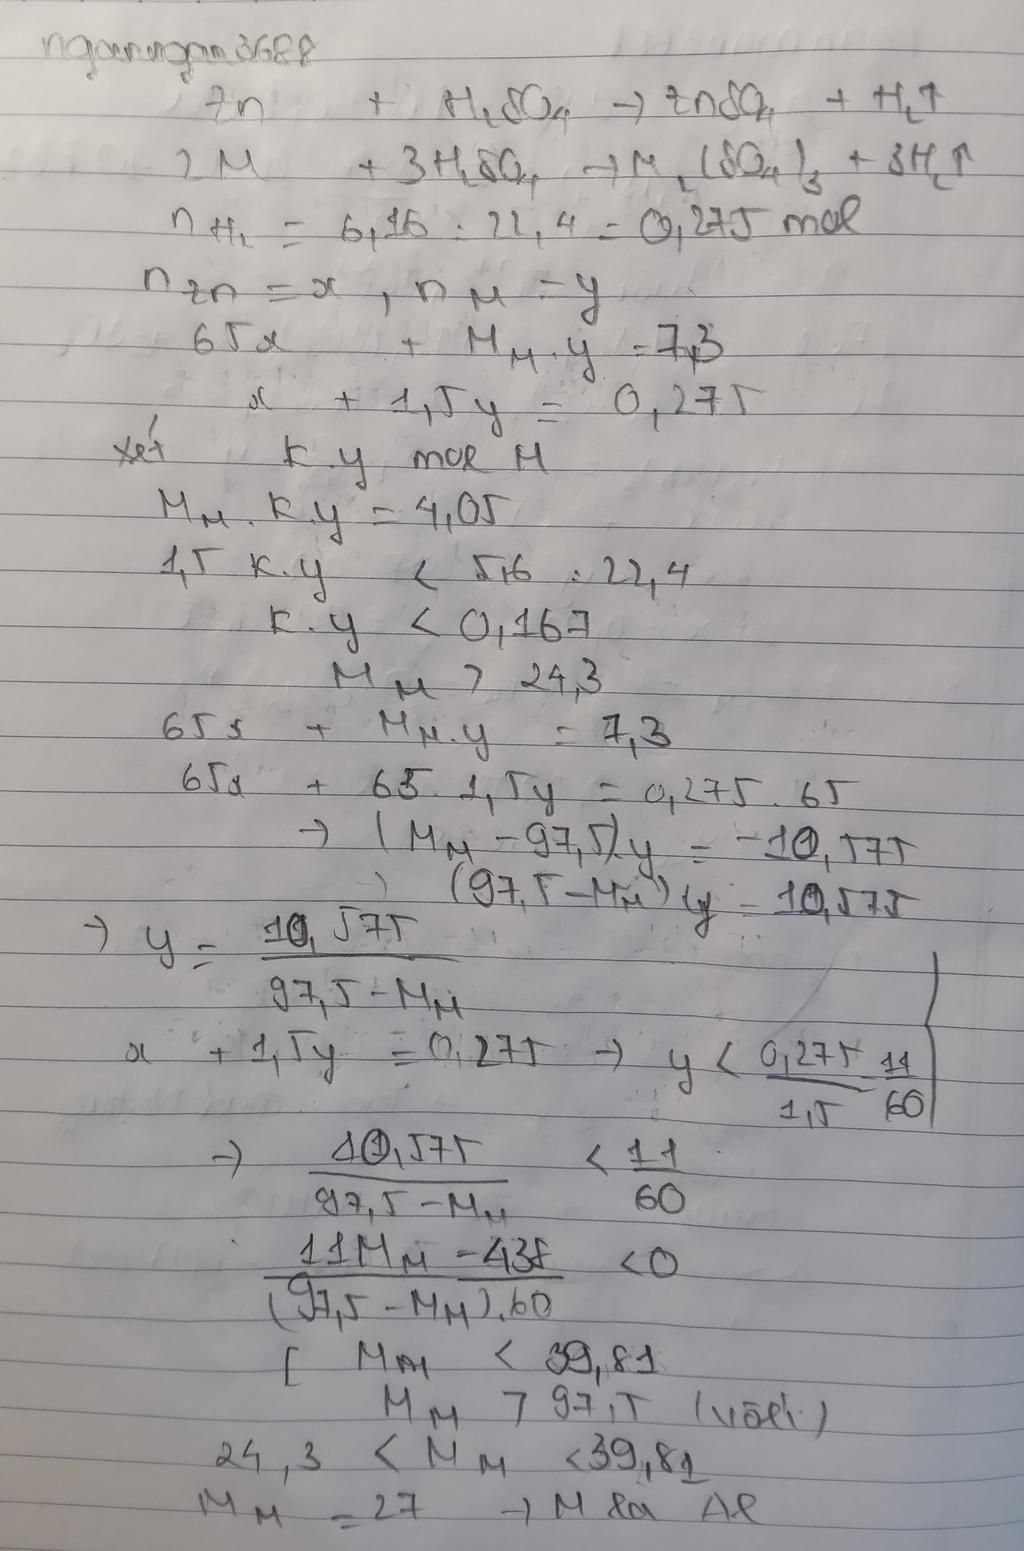 nganngan3688
Zn + H₂SO₄ → ZnSO₄ + H₂↑
2M + 3H₂SO₄ → M₂(SO₄)₃ + 3H₂↑
n H₂ = 6,16 : 22,4 = 0,275 mol
n Zn = x, n M = y
65x + M_M.y = 7,3
x + 1,5y = 0,275
xét k.y mol M
M_M.k.y = 4,05
1,5 k.y < 5,6 : 22,4
k.y < 0,167
M_M > 24,3
65x + M_M.y = 7,3
65x + 65.1,5y = 0,275.65
→ (M_M - 97,5)y = -10,575
→ (97,5 - M_M)y = 10,575
→ y = 10,575 / (97,5 - M_M)
x + 1,5y = 0,275 → y < 0,275 / 1,5 = 11 / 60
→ 10,575 / (97,5 - M_M) < 11 / 60
(11M_M - 438) / ((97,5 - M_M).60) < 0
[ M_M < 39,81
M_M > 97,5 (loại)
24,3 < M_M < 39,81
M_M = 27 → M là Al